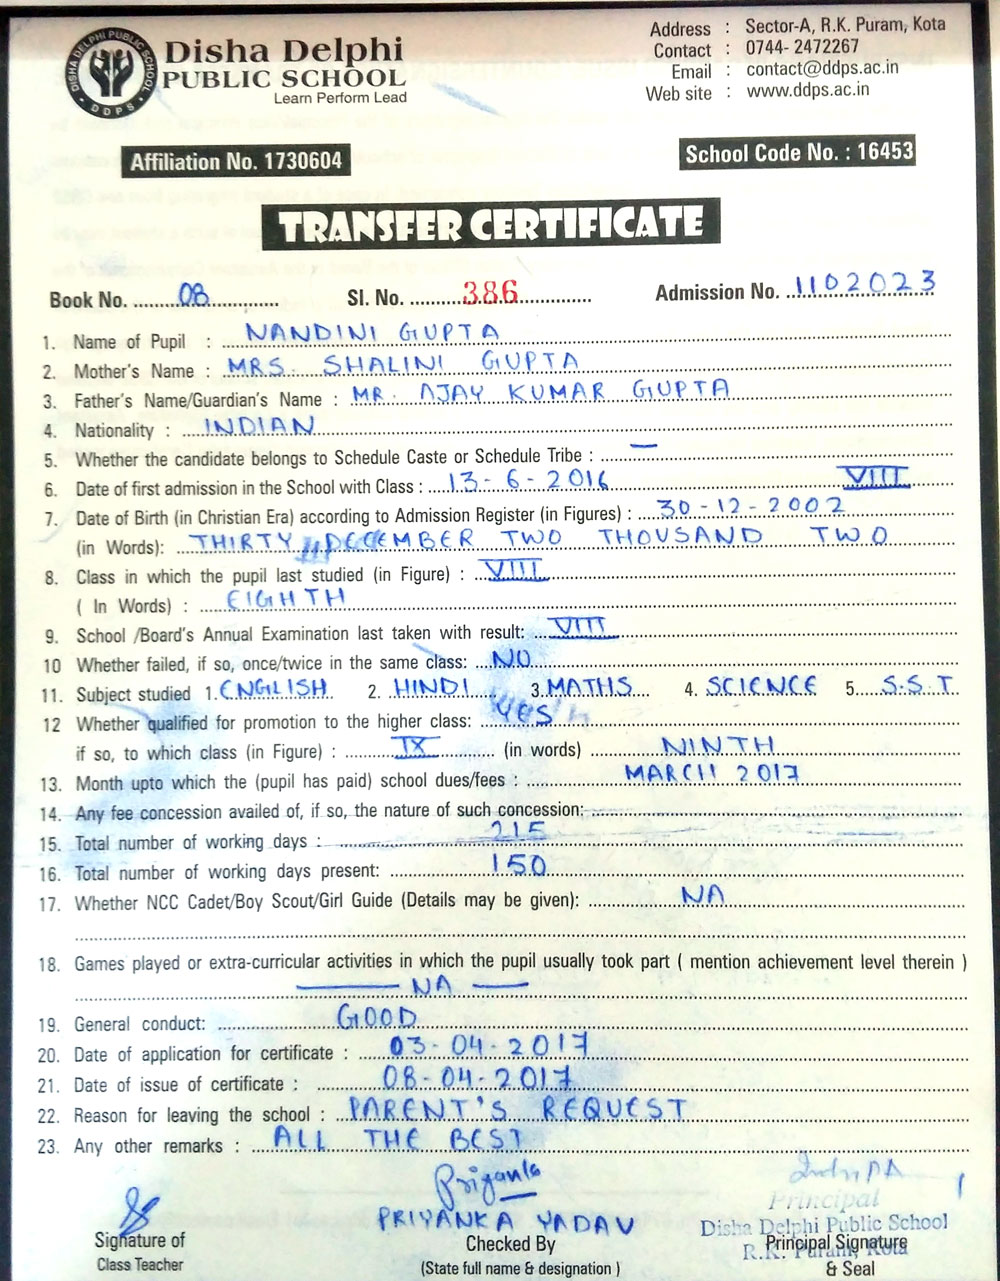 DISHA DELPHI PUBLIC SCHOOL
DDPS
Disha Delphi
PUBLIC SCHOOL
Learn Perform Lead
Address : Sector-A, R.K. Puram, Kota
Contact : 0744- 2472267
Email : contact@ddps.ac.in
Web site : www.ddps.ac.in
Affiliation No. 1730604
School Code No. : 16453
TRANSFER CERTIFICATE
Book No. 08 Sl. No. 386 Admission No. 1102023
1. Name of Pupil : NANDINI GUPTA
2. Mother's Name : MRS. SHALINI GUPTA
3. Father's Name/Guardian's Name : MR. AJAY KUMAR GUPTA
4. Nationality : INDIAN
5. Whether the candidate belongs to Schedule Caste or Schedule Tribe : —
6. Date of first admission in the School with Class : 13-6-2016 VIII
7. Date of Birth (in Christian Era) according to Admission Register (in Figures) : 30-12-2002
(in Words): THIRTY DECEMBER TWO THOUSAND TWO
8. Class in which the pupil last studied (in Figure) : VIII
( In Words) : EIGHTH
9. School /Board's Annual Examination last taken with result: VIII
10 Whether failed, if so, once/twice in the same class: NO
11. Subject studied 1. ENGLISH 2. HINDI 3. MATHS 4. SCIENCE 5. S.S.T
12 Whether qualified for promotion to the higher class: YES
if so, to which class (in Figure) : IX (in words) NINTH
13. Month upto which the (pupil has paid) school dues/fees : MARCH 2017
14. Any fee concession availed of, if so, the nature of such concession:
15. Total number of working days : 215
16. Total number of working days present: 150
17. Whether NCC Cadet/Boy Scout/Girl Guide (Details may be given): NA
18. Games played or extra-curricular activities in which the pupil usually took part ( mention achievement level therein )
— NA —
19. General conduct: GOOD
20. Date of application for certificate : 03-04-2017
21. Date of issue of certificate : 08-04-2017
22. Reason for leaving the school : PARENT'S REQUEST
23. Any other remarks : ALL THE BEST
Priyanka
PRIYANKA YADAV
Principal
Disha Delphi Public School
R.K. Puram, Kota
Signature of
Class Teacher
Checked By
(State full name & designation )
Principal Signature
& Seal